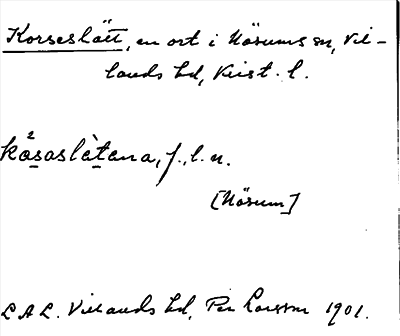 Korseslätt, en ort i Näsums sn, Vil-
lands hd, Krist. l.
kåsaslètana, f., l. n.
[Näsum]
L A L. Villands hd, Per Larsson 1901.